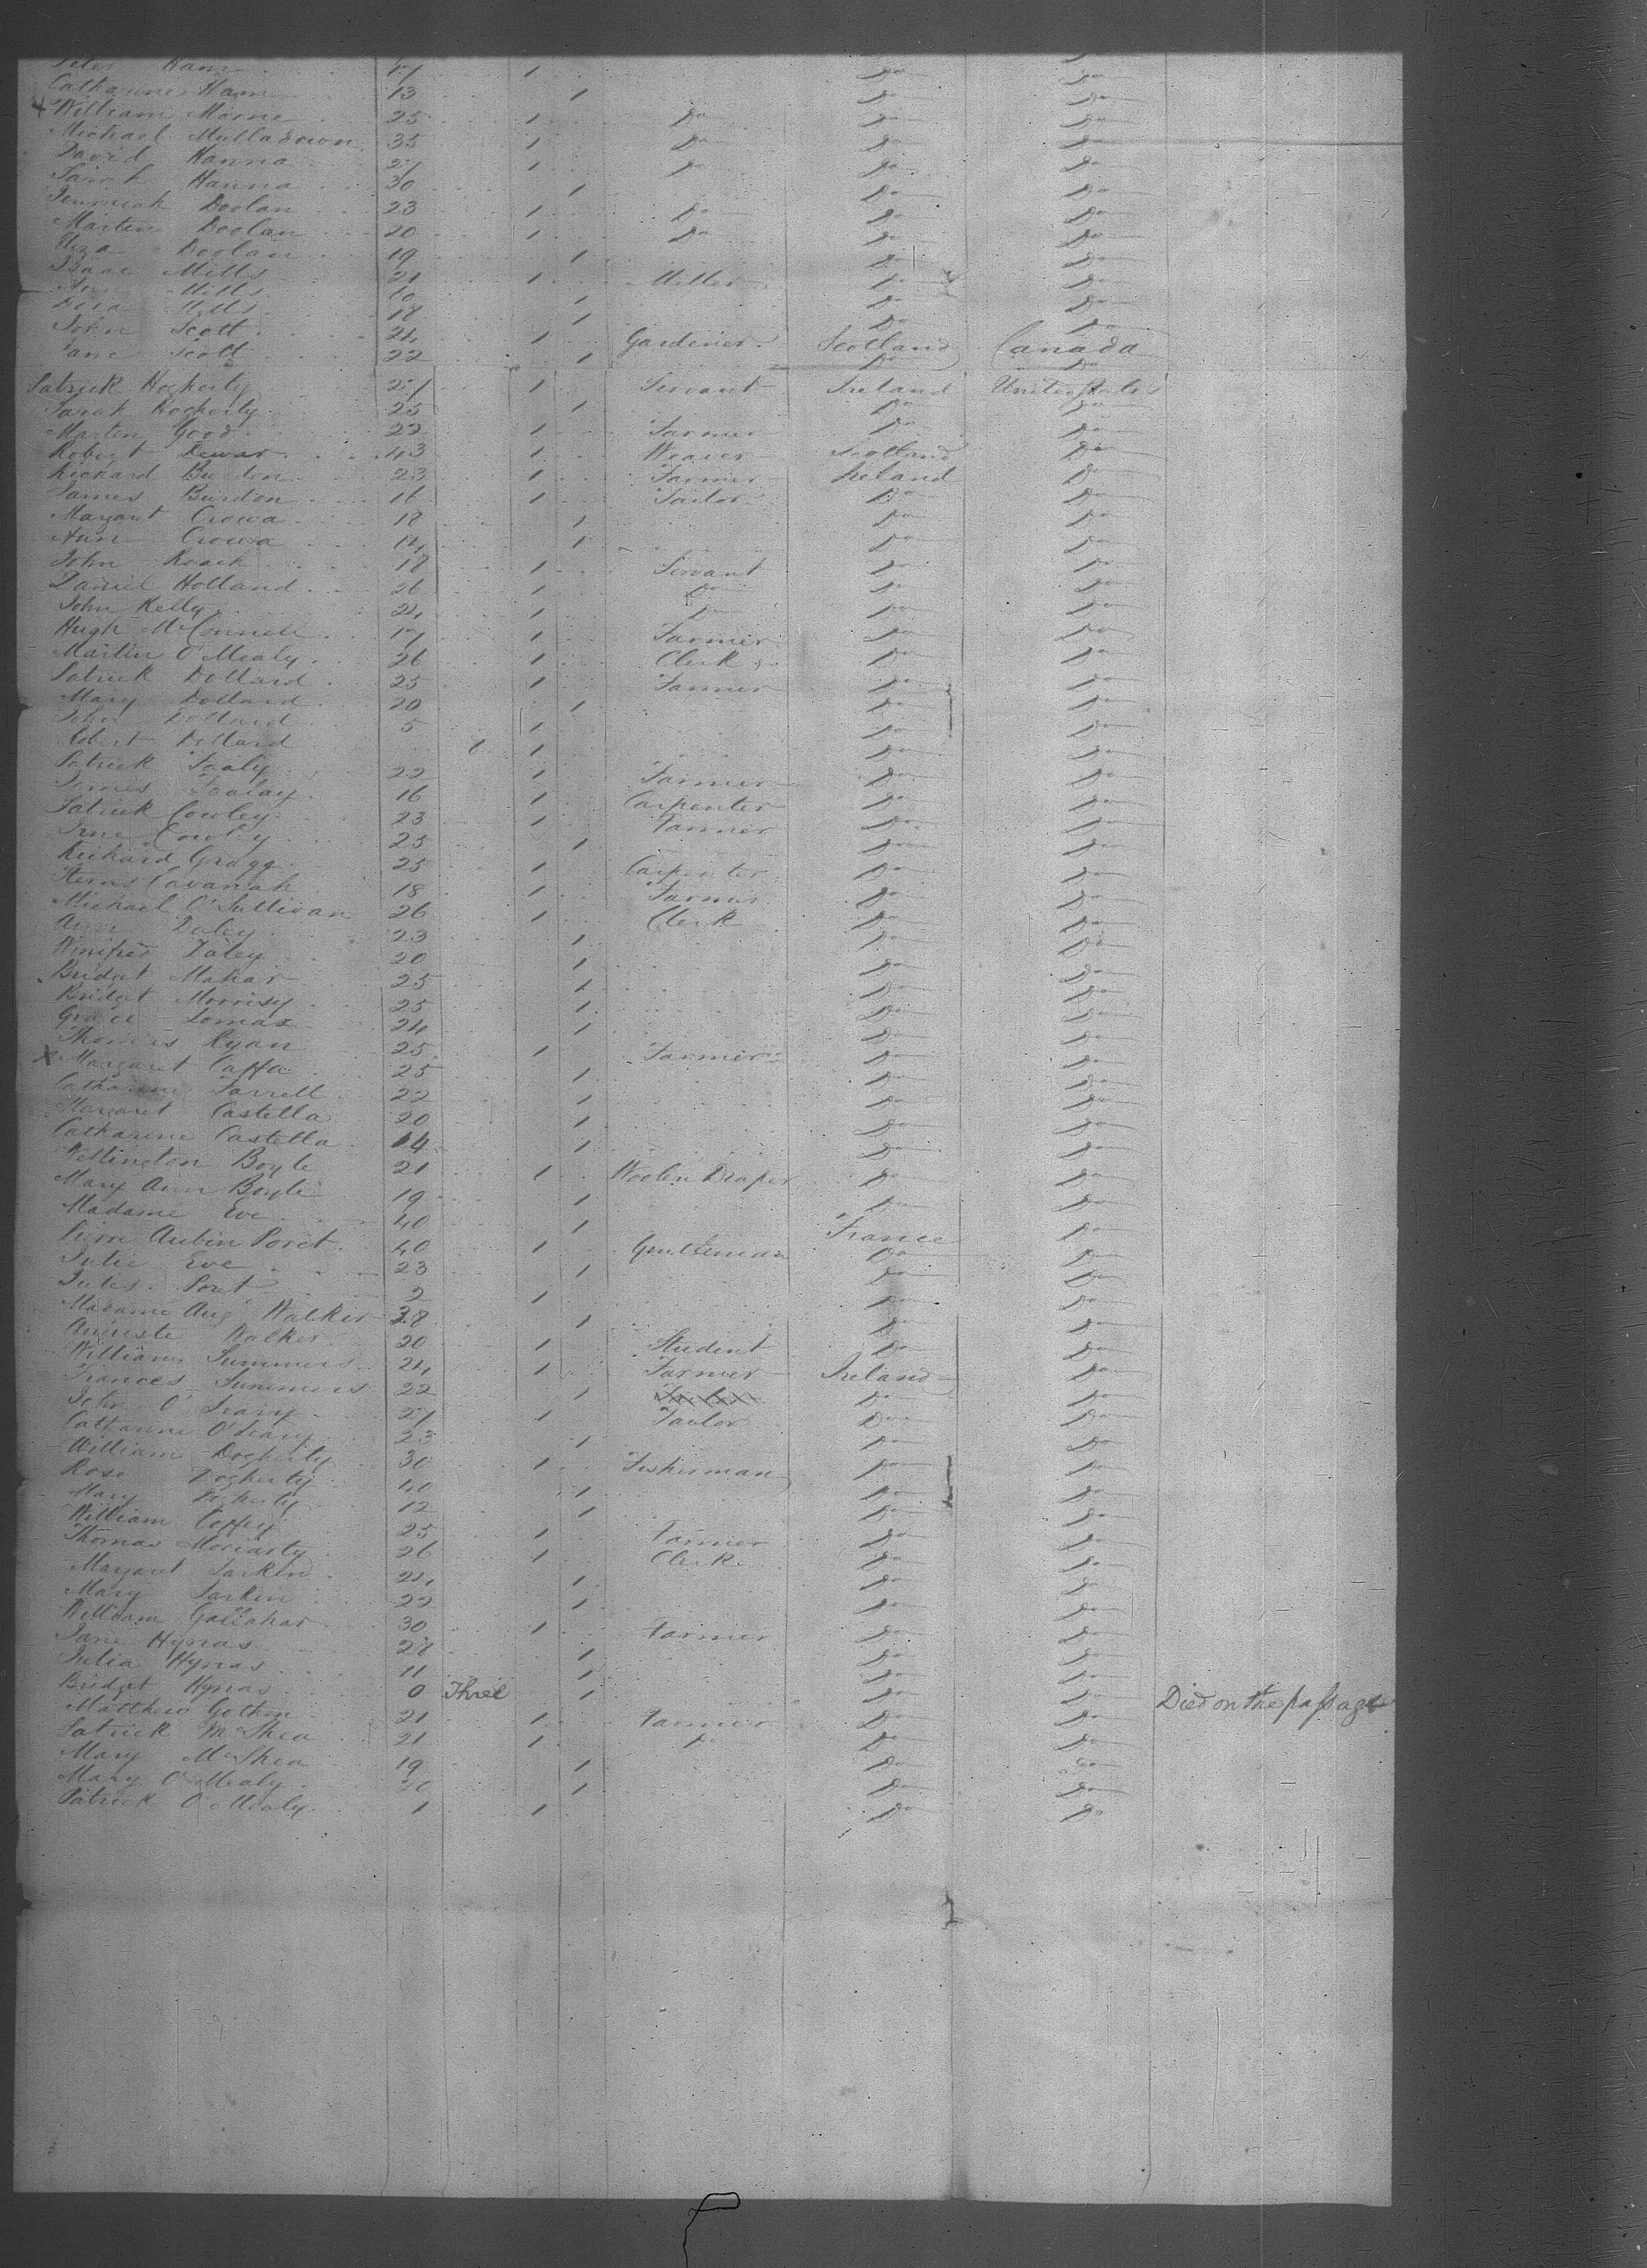 Peter Ham 17 1 Do Do
Catharine Ham 13 1 Do Do
William Morne 25 1 Do Do Do
Michael 35 1 Do Do Do
David Hanna 27 1 Do Do Do
Sarah Hanna 30 1 Do Do
Jeremiah Doolan 23 1 Do Do Do
Martin Doolan 20 1 Do Do Do
Eliza Doolan 19 1 Do Do
Isaac Mills 21 1 Miller Do Do
Mills 1 Do Do
Dora Mills 18 1 Do Do
John Scott 24 1 Gardener Scotland Canada
Jane Scott 22 1 Do Do
Patrick Hogherty 27 1 Servant Ireland United States
Sarah Hogherty 25 1 Do Do
Marten Good 22 1 Farmer Do Do
Robert Dewar 43 1 Weaver Scotland Do
Richard Burdon 23 1 Farmer Ireland Do
James Burdon 16 1 Tailor Do Do
Margart Crowa 18 1 Do Do
Ann Crowa 14 1 Do Do
John Roach 18 1 Servant Do Do
Daniel Holland 26 1 Do Do Do
John Kelly 24 1 Do Do Do
Hugh McConnell 17 1 Farmer Do Do
Martin O'Mealy 26 1 Clerk Do Do
Patrick Dollard 25 1 Farmer Do Do
Mary Dollard 20 1 Do Do
John Dollard 5 1 Do Do
Robert Dollard 6 1 Do Do
Patrick Fealy 22 1 Farmer Do Do
James 16 1 Carpenter Do Do
Patrick Cowley 23 1 Farmer Do Do
Cowley 25 1 Do Do
Richard Gragg 25 1 Carpenter Do Do
Cavanah 18 1 Farmer Do Do
Michael O'Sullivan 26 1 Clerk Do Do
Ann Daley 23 1 Do Do
Winifred Daley 20 1 Do Do
Bridget Mahar 25 1 Do Do
Bridget Morrisy 25 1 Do Do
Grace Lomax 24 1 Do Do
Thomas Ryan 25 1 Farmer Do Do
X Margaret Caffa 25 1 Do Do
Catharine Farrell 22 1 Do Do
Margaret Castella 20 1 Do Do
Catharine Castella 14 1 Do Do
Wellington Boyle 21 1 Woolen Draper Do Do
Mary Ann Boyle 19 1 Do Do
Madame Eve 40 1 France Do
Pierre Aubin Poret 40 1 Gentleman Do Do
Julie Eve 23 1 Do Do
Jules Poret 2 1 Do Do
Madame Aug Walker 38 1 Do Do
Auguste Walker 20 1 Student Do Do
William Summers 24 1 Farmer Ireland Do
Frances Summers 22 1 Do Do
John O'Leary 27 1 Tailor Do Do
Catharine O'Leary 23 1 Do Do
William Dogherty 30 1 Fisherman Do Do
Rose Dogherty 40 1 Do Do
Mary Dogherty 12 1 Do Do
William Coffey 25 1 Farmer Do Do
Thomas Moriarty 26 1 Clerk Do Do
Margaret Larkin 24 1 Do Do
Mary Larkin 22 1 Do Do
William Gallahar 30 1 Farmer Do Do
Jane Hynas 28 1 Do Do
Julia Hynas 11 1 Do Do
Bridget Hynas 0 Three 1 Do Do Died on the passage
Matthew Gothen 21 1 Farmer Do Do
Patrick McShea 21 1 Do Do Do
Mary McShea 19 1 Do Do
Mary O'Mealy 20 1 Do Do
Patrick O'Mealy 1 1 Do Do